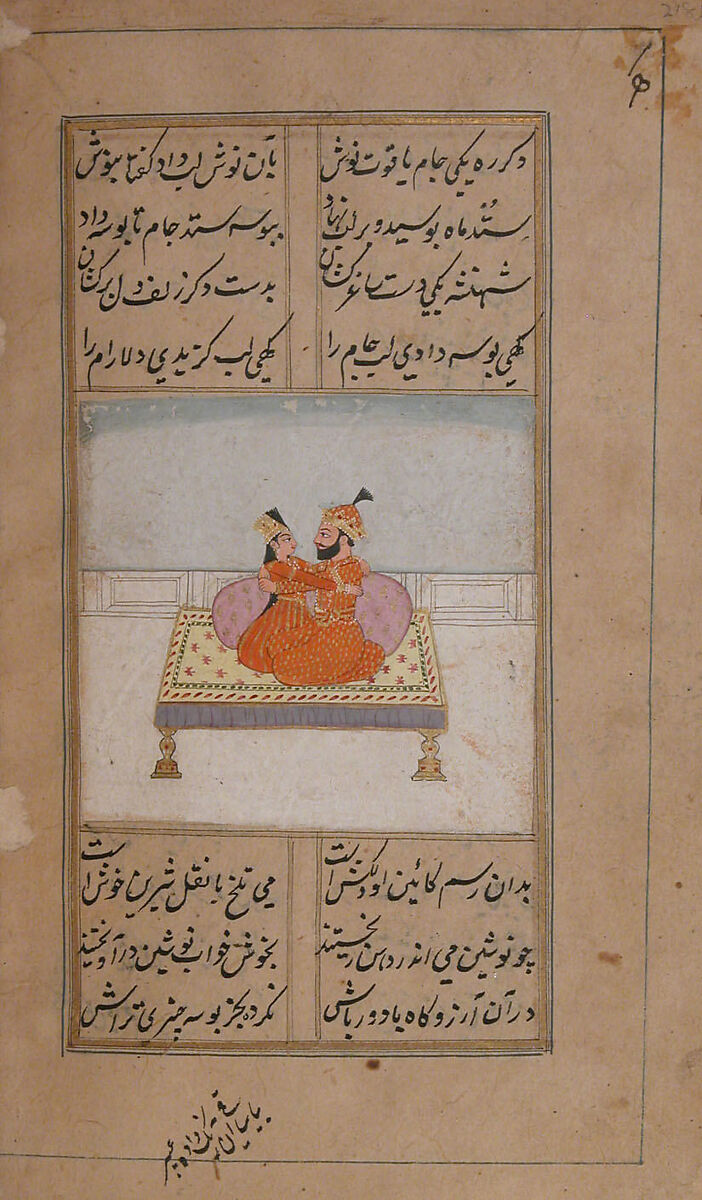 دکر ره یکی جام یاقوت نوش بآن نوش لب داد کفتا بنوش
ستد ماه بوسید و بر لب نهاد ببوسه ستد جام تا بوسه داد
شهنشه یکی دست ساغر کشان بدست دکر زلف دلبر کشان
کهی بوسه دادی لب جام را کهی لب کزیدی دلارام را
بدان رسم کائین او دلکش است می تلخ با نقل شیرین خوش است
چو نوشین می اندر دهن ریختند بخوش خواب نوشین درآویختند
در آن آرزوکاه با دور باش نکرده بجز بوسه چیزی تراش